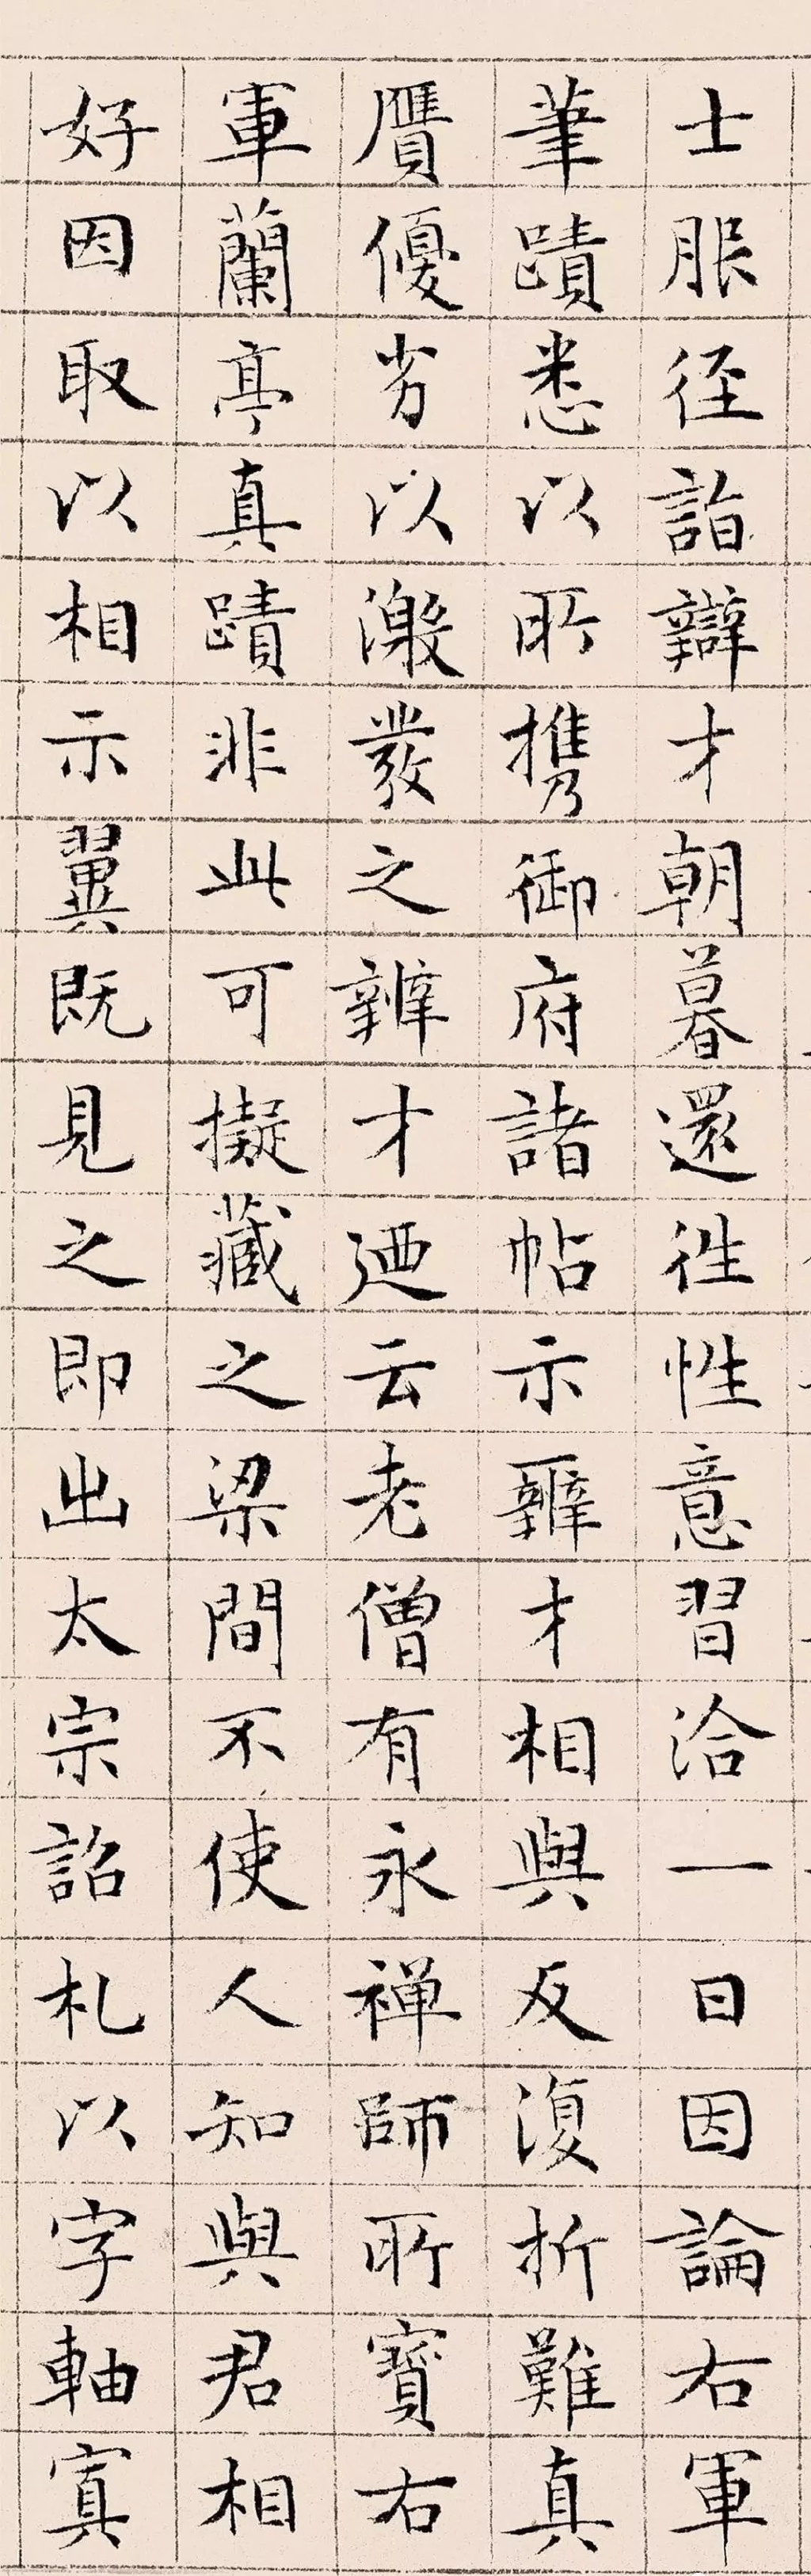 士服径詣辯才朝暮還徃性意習洽一日因論右軍
筆蹟悉以所携御府諸帖示辦才相與反復折難真
贋優劣以激發之辦才迺云老僧有永禅師所寶右
軍蘭亭真蹟非此可擬藏之梁間不使人知與君相
好因取以相示翼既見之即出太宗詔札以字軸寘